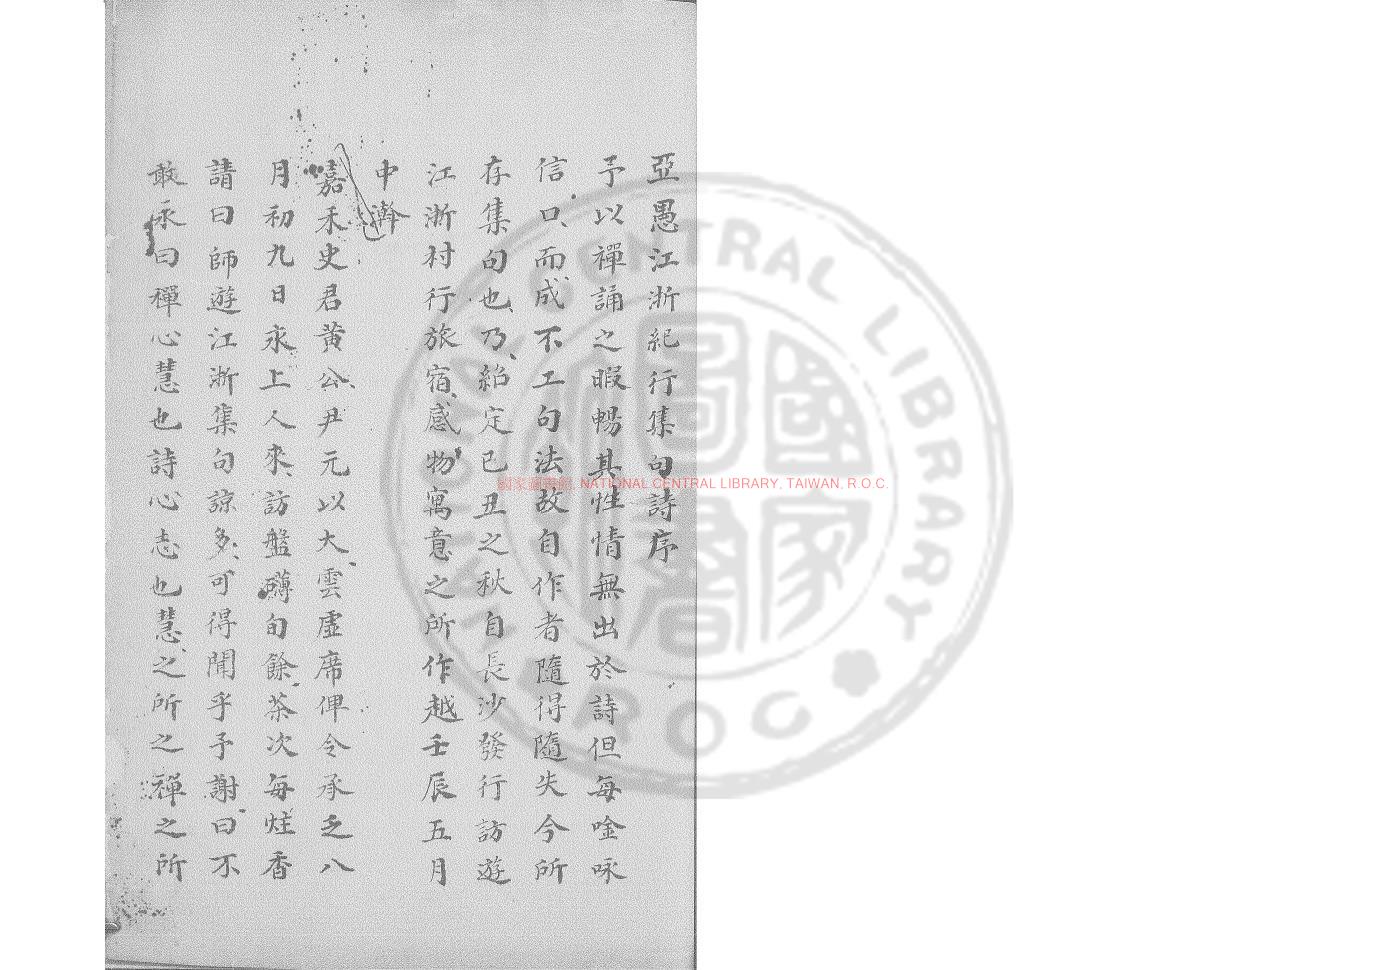 亞愚江浙紀行集句詩序
予以禪誦之暇暢其性情無出於詩但每唫咏
信口而成不工句法故自作者隨得隨失今所
存集句也乃紹定已丑之秋自長沙發行訪遊
江浙村行旅宿感物寓意之所作越壬辰五月
中澣
嘉禾史君黄公尹元以大雲虛席俾令承乏八
月初九日永上人來訪盤礴旬餘茶次每炷香
請曰師遊江浙集句諒多可得聞乎予謝曰不
敢永曰禪心慧也詩心志也慧之所之禪之所
國家圖書館, NATIONAL CENTRAL LIBRARY, TAIWAN, R.O.C.
NATIONAL CENTRAL LIBRARY
ROC
國家圖書